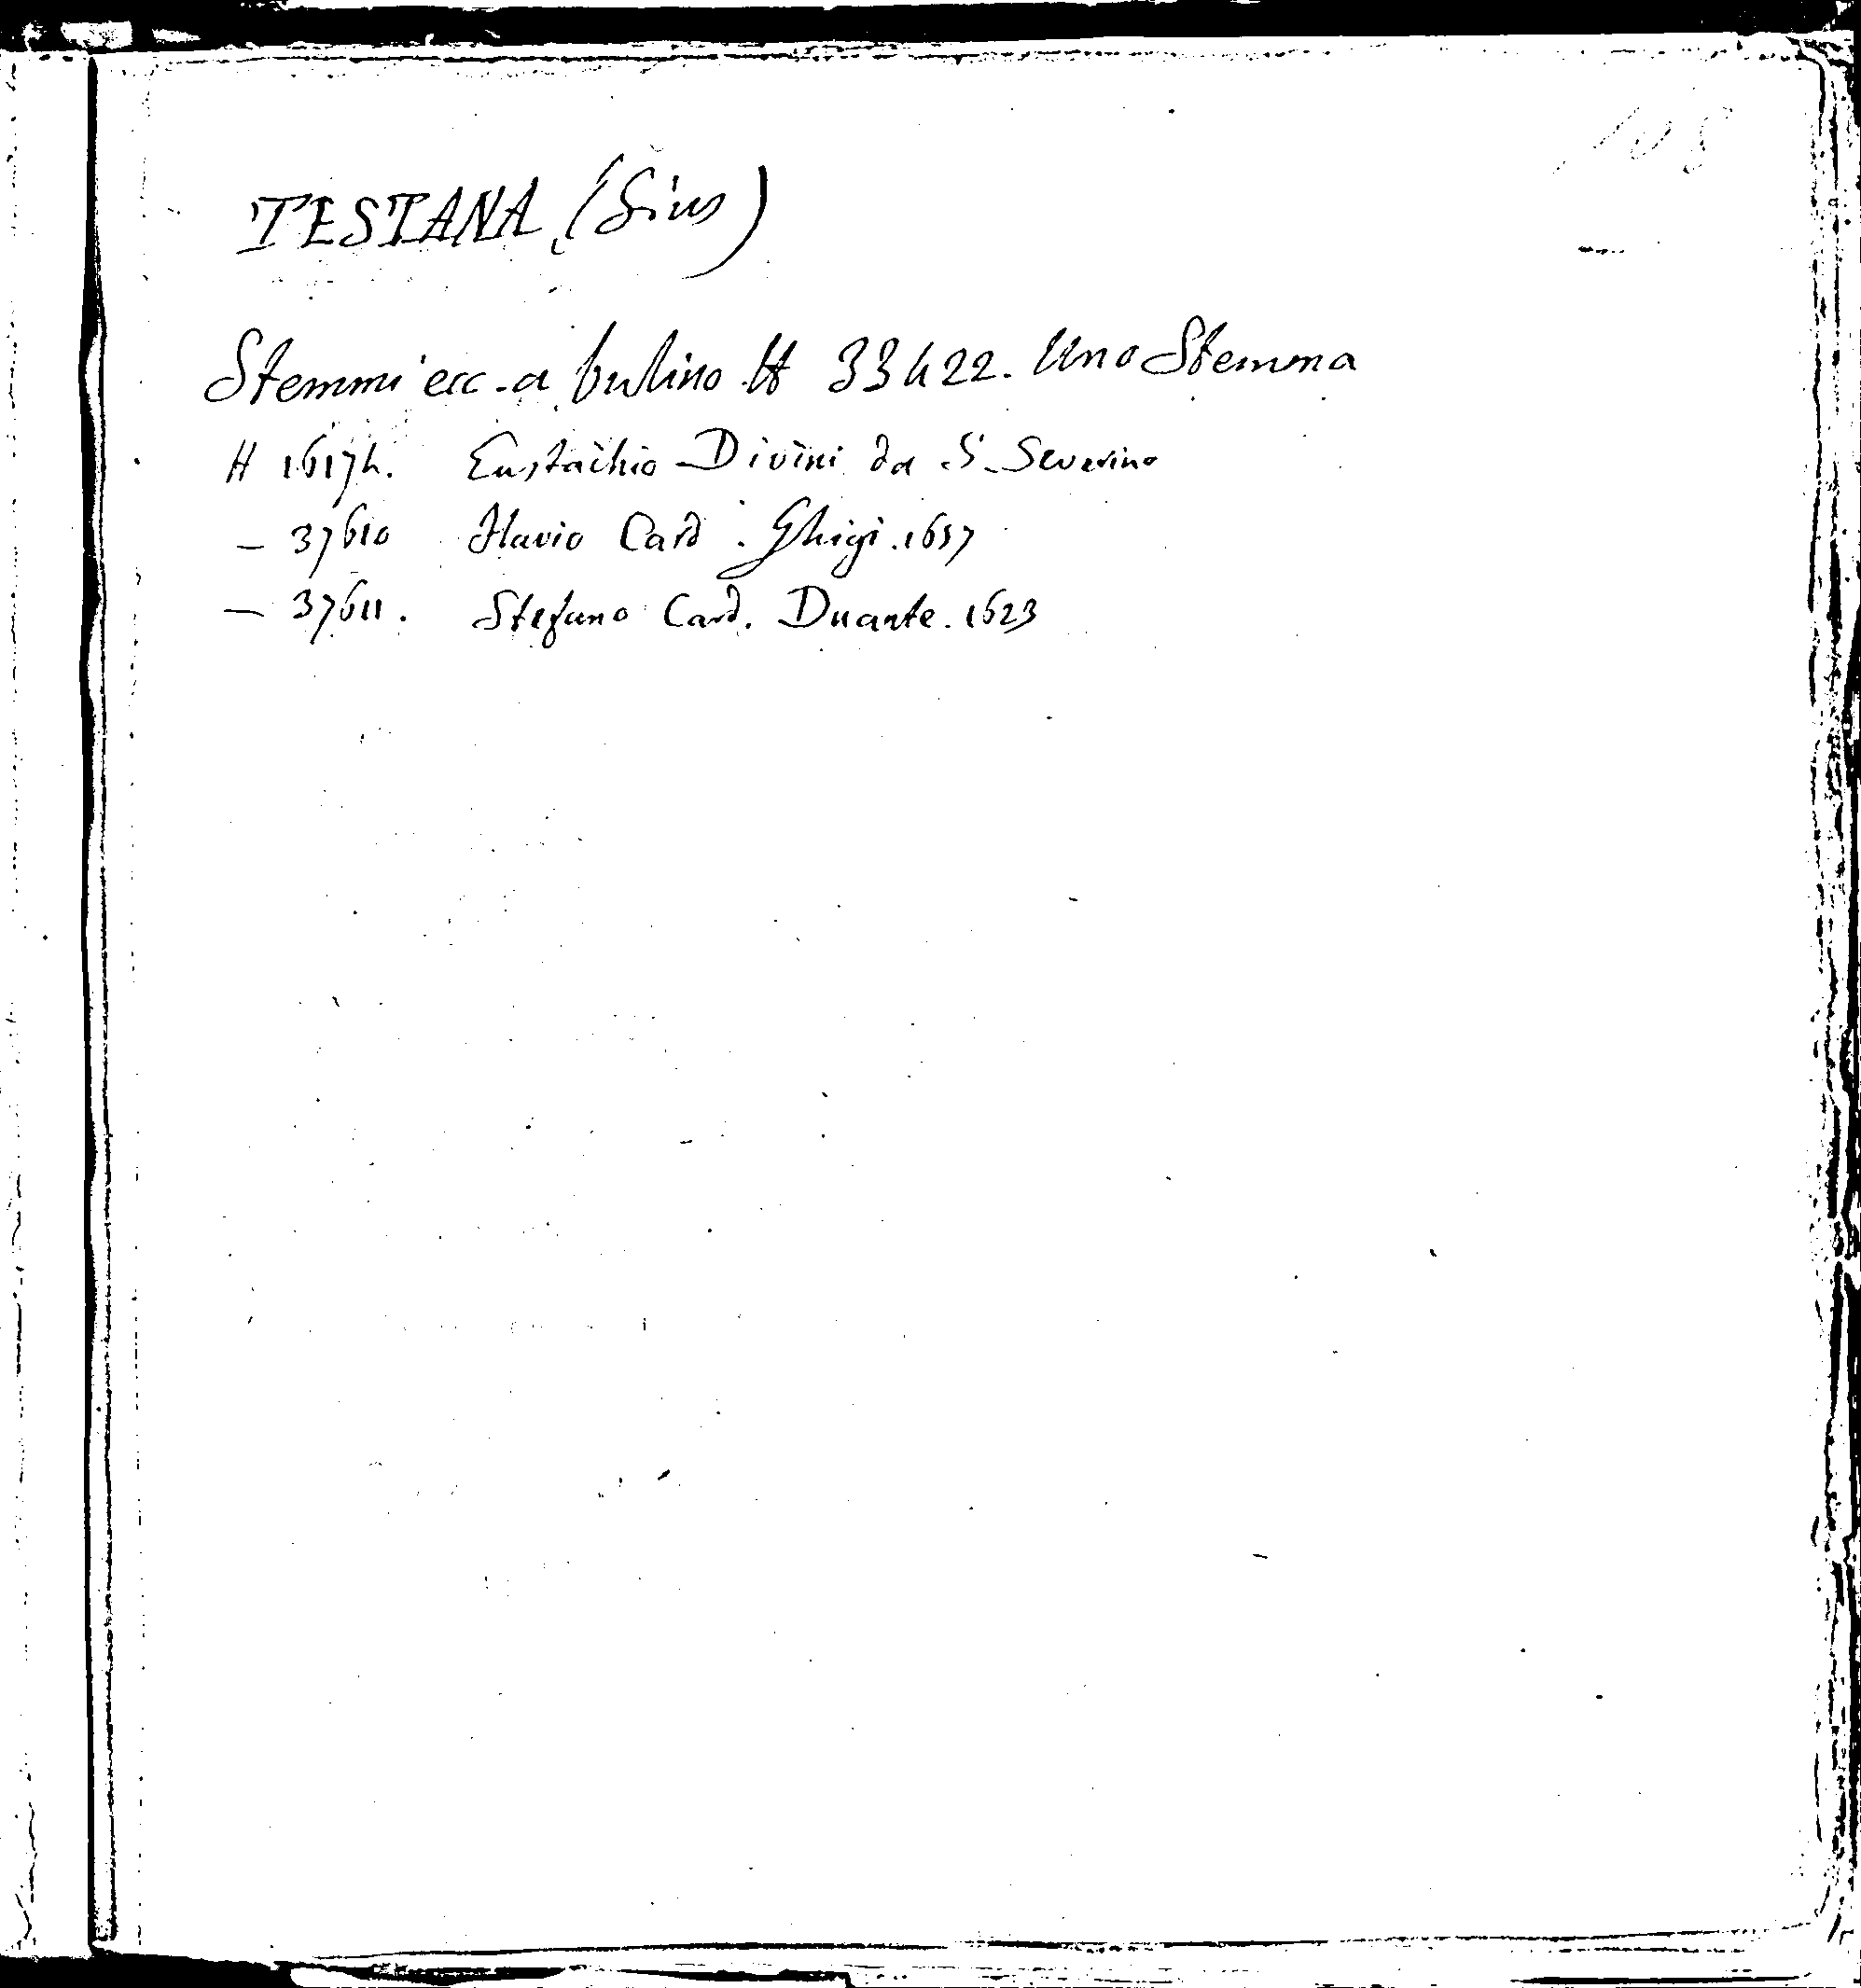 108
TESTANA (Gius)
Stemmi ecc. a bulino H 33422. Uno Stemma
H 16174. Eustachio Divini da S. Severino
— 37610 Flavio Card. Ghigi. 1657
— 37611. Stefano Card. Duante. 1623